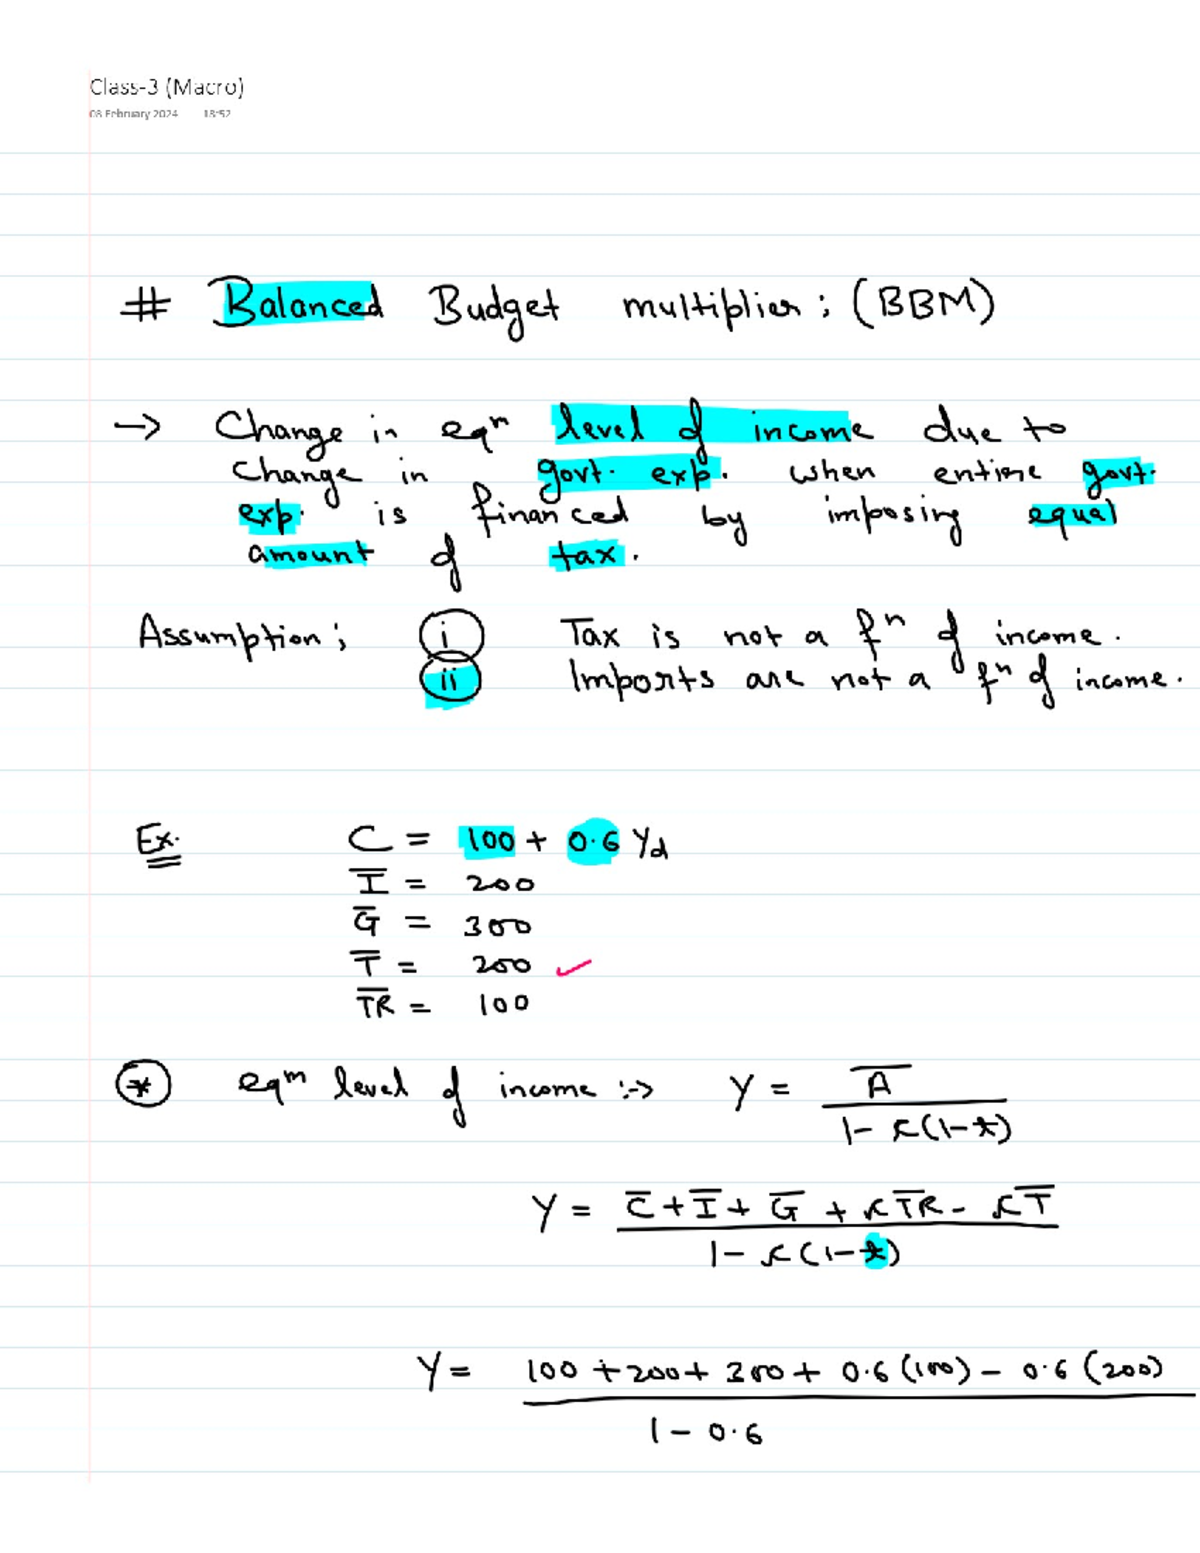 Class-3 (Macro)
08 February 2024 18:52
# Balanced Budget multiplier : (BBM)
→ Change in eqⁿ level of income due to
change in govt. exp. when entire govt.
exp. is financed by imposing equal
amount of tax.
Assumption : (i) Tax is not a fⁿ of income.
(ii) Imports are not a fⁿ of income.
Ex. C = 100 + 0.6 Yd
I̅ = 200
G̅ = 300
T̅ = 200 ✓
T̅R̅ = 100
* eqᵐ level of income :-> Y = A̅ / 1 - c(1-t)
Y = C̅ + I̅ + G̅ + cT̅R̅ - cT̅ / 1 - c(1-t)
Y = 100 + 200 + 300 + 0.6 (100) - 0.6 (200) / 1 - 0.6